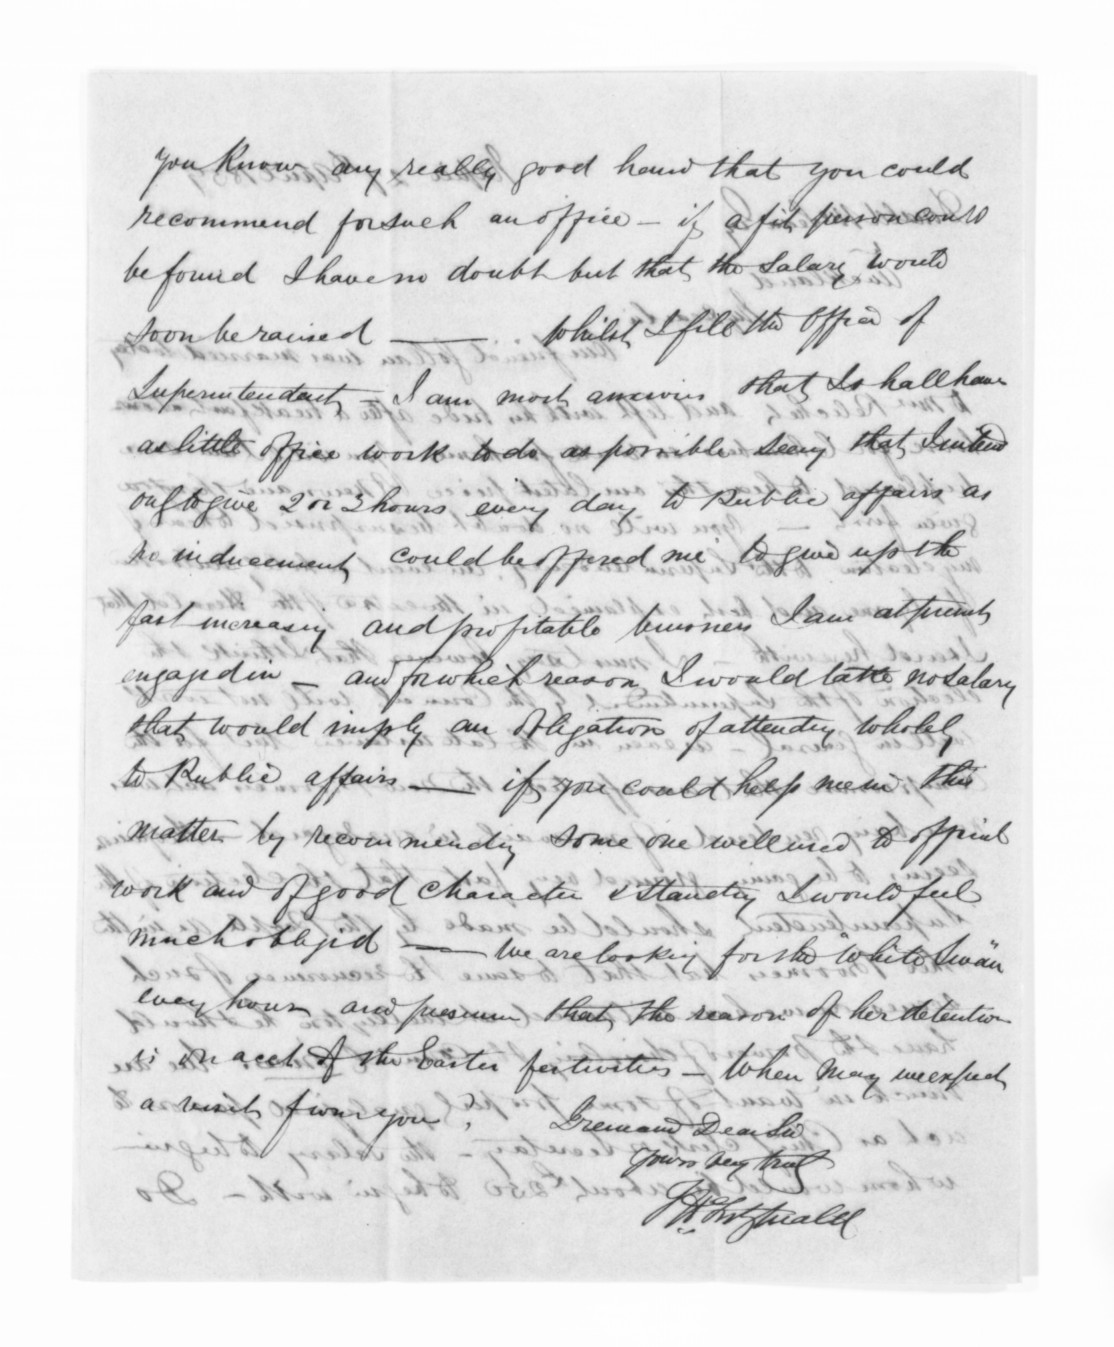 you know any really good hand that you could
recommend for such an office — if a fit person could
be found I have no doubt but that the Salary would
soon be raised — Whilst I fill the Office of
Superintendent — I am most anxious that I shall have
as little office work to do as possible seeing that I intend
only to give 2 or 3 hours every day to Public affairs as
no inducement could be offered me to give up the
fast increasing and profitable business I am at present
engaged in — and for which reason I would take no salary
that would imply an obligation of attending wholely
to Public affairs — if you could help me in this
matter by recommending some one well used to official
work and of good character & standing I would feel
much obliged — We are looking for the "White Swan"
every hour and presume that the reason of her detention
is on acct of the Easter festivities — When may we expect
a visit from you?
I remain Dear Sir
Yours very truly
Fitzgerald